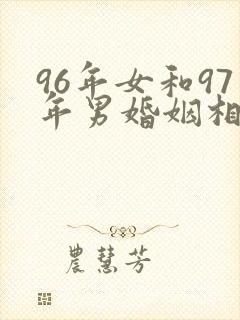 96年女和97
年男婚姻相
農慧芳